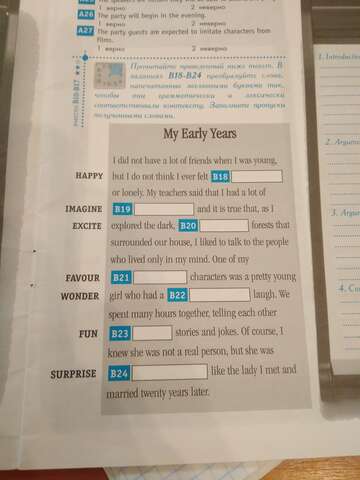 A26 The party will begin in the evening.
1 верно 2 неверно
A27 The party guests are expected to imitate characters from
films.
1 верно 2 неверно
Прочитайте приведенный ниже текст. В
заданиях B18-B24 преобразуйте слова,
напечатанные заглавными буквами так,
чтобы они грамматически и лексически
соответствовали контексту. Заполните пропуски
полученными словами.
My Early Years
I did not have a lot of friends when I was young,
HAPPY but I do not think I ever felt B18
or lonely. My teachers said that I had a lot of
IMAGINE B19 and it is true that, as I
EXCITE explored the dark, B20 forests that
surrounded our house, I liked to talk to the people
who lived only in my mind. One of my
FAVOUR B21 characters was a pretty young
WONDER girl who had a B22 laugh. We
spent many hours together, telling each other
FUN B23 stories and jokes. Of course, I
knew she was not a real person, but she was
SURPRISE B24 like the lady I met and
married twenty years later.
1. Introduction
2. Argum
3. Argu
4. Co